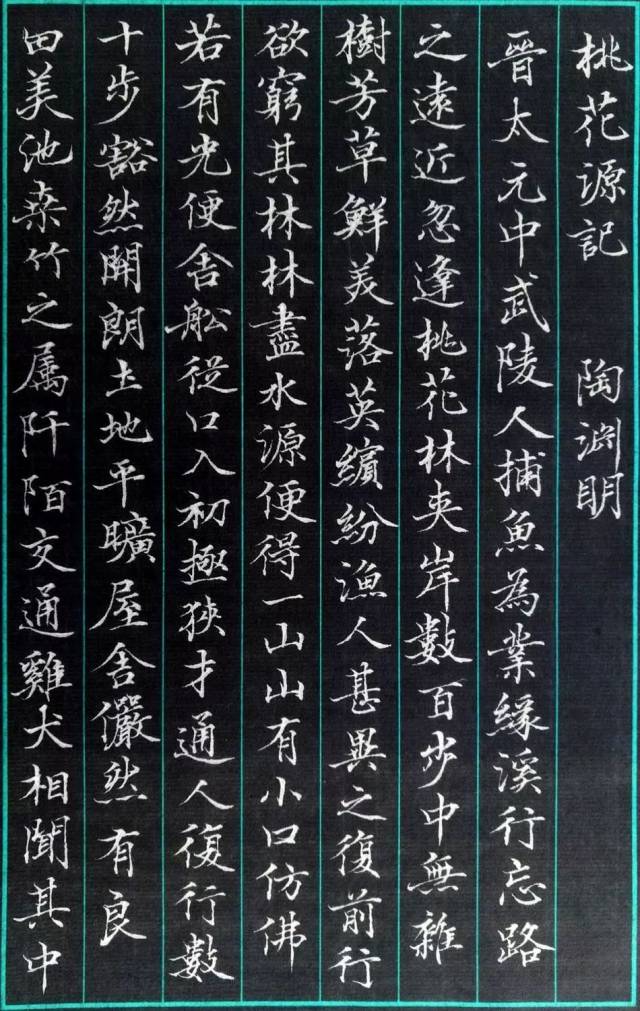 桃花源記 陶渊明
晉太元中武陵人捕魚為業緣溪行忘路
之遠近忽逢桃花林夹岸數百步中無雜
樹芳草鮮美落英繽紛漁人甚異之復前行
欲窮其林林盡水源便得一山山有小口仿佛
若有光便舍船從口入初極狹才通人復行數
十步豁然開朗土地平曠屋舍儼然有良
田美池桑竹之属阡陌交通雞犬相聞其中